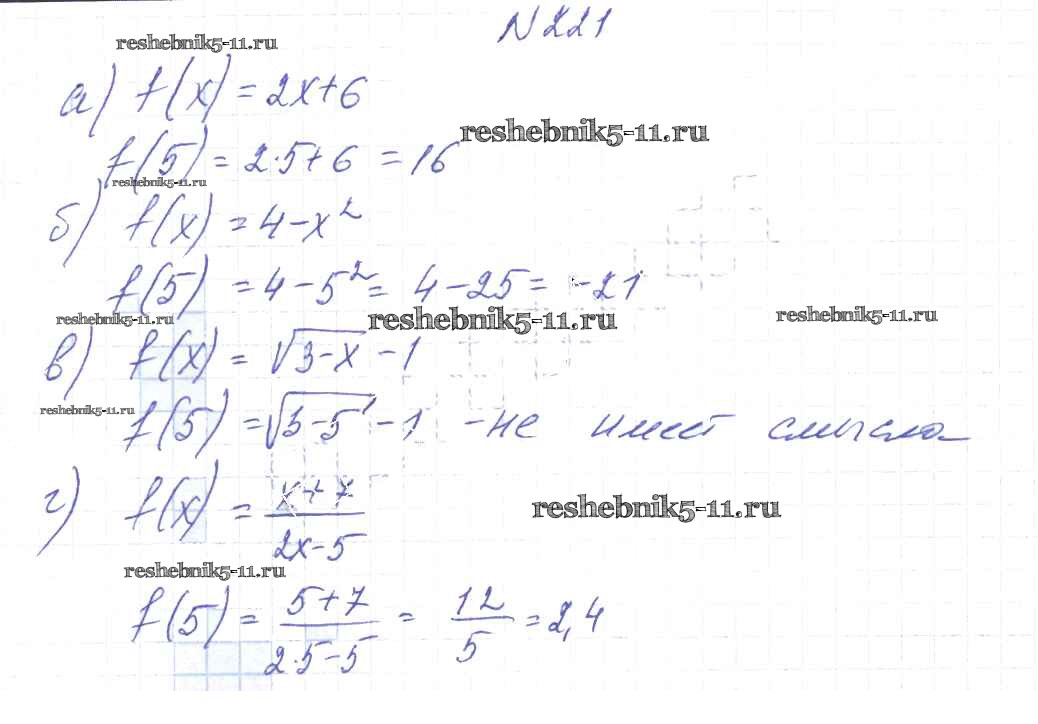 N 221
reshebnik5-11.ru
а) f(x) = 2x+6
reshebnik5-11.ru
f(5) = 2·5+6 = 16
reshebnik5-11.ru
б) f(x) = 4-x²
f(5) = 4-5² = 4-25 = -21
reshebnik5-11.ru
reshebnik5-11.ru
reshebnik5-11.ru
в) f(x) = √(3-x) - 1
reshebnik5-11.ru
f(5) = √(3-5) - 1 - не имеет смысла
г) f(x) = (x+7)/(2x-5)
reshebnik5-11.ru
reshebnik5-11.ru
f(5) = (5+7)/(2·5-5) = 12/5 = 2,4